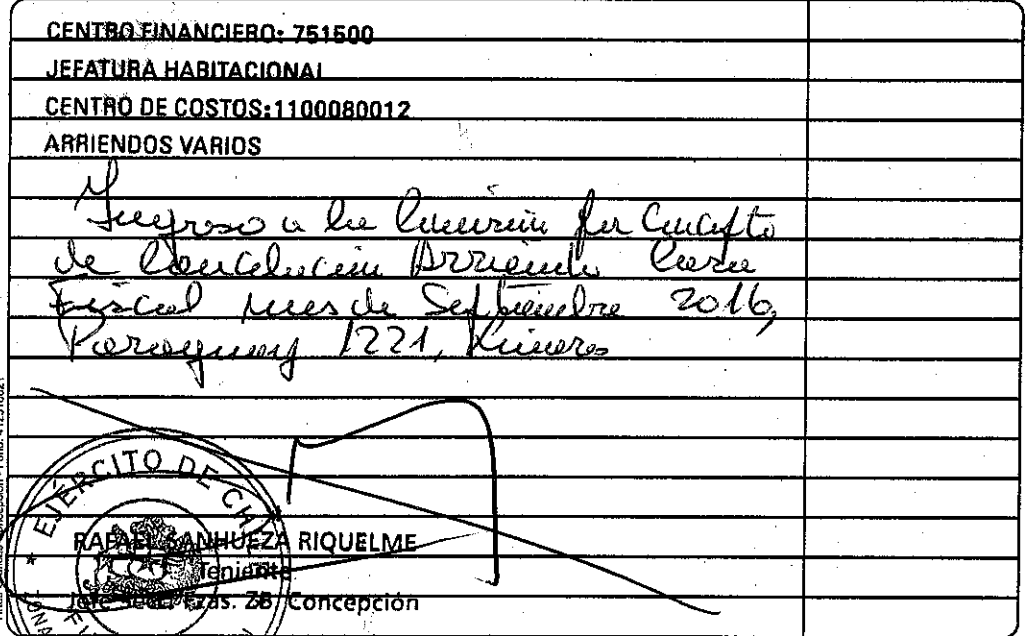 CENTRO FINANCIERO: 751500
JEFATURA HABITACIONAL
CENTRO DE COSTOS:1100080012
ARRIENDOS VARIOS
Ingreso a la Comisión por Concepto
de Cancelación Arriendo Casa
Fiscal mes de Septiembre 2016,
Paraguay 1221, Linares
EJÉRCITO DE CHILE
RAFAEL SANHUEZA RIQUELME
Teniente
Jefe Secc. Fzas. ZB. Concepción